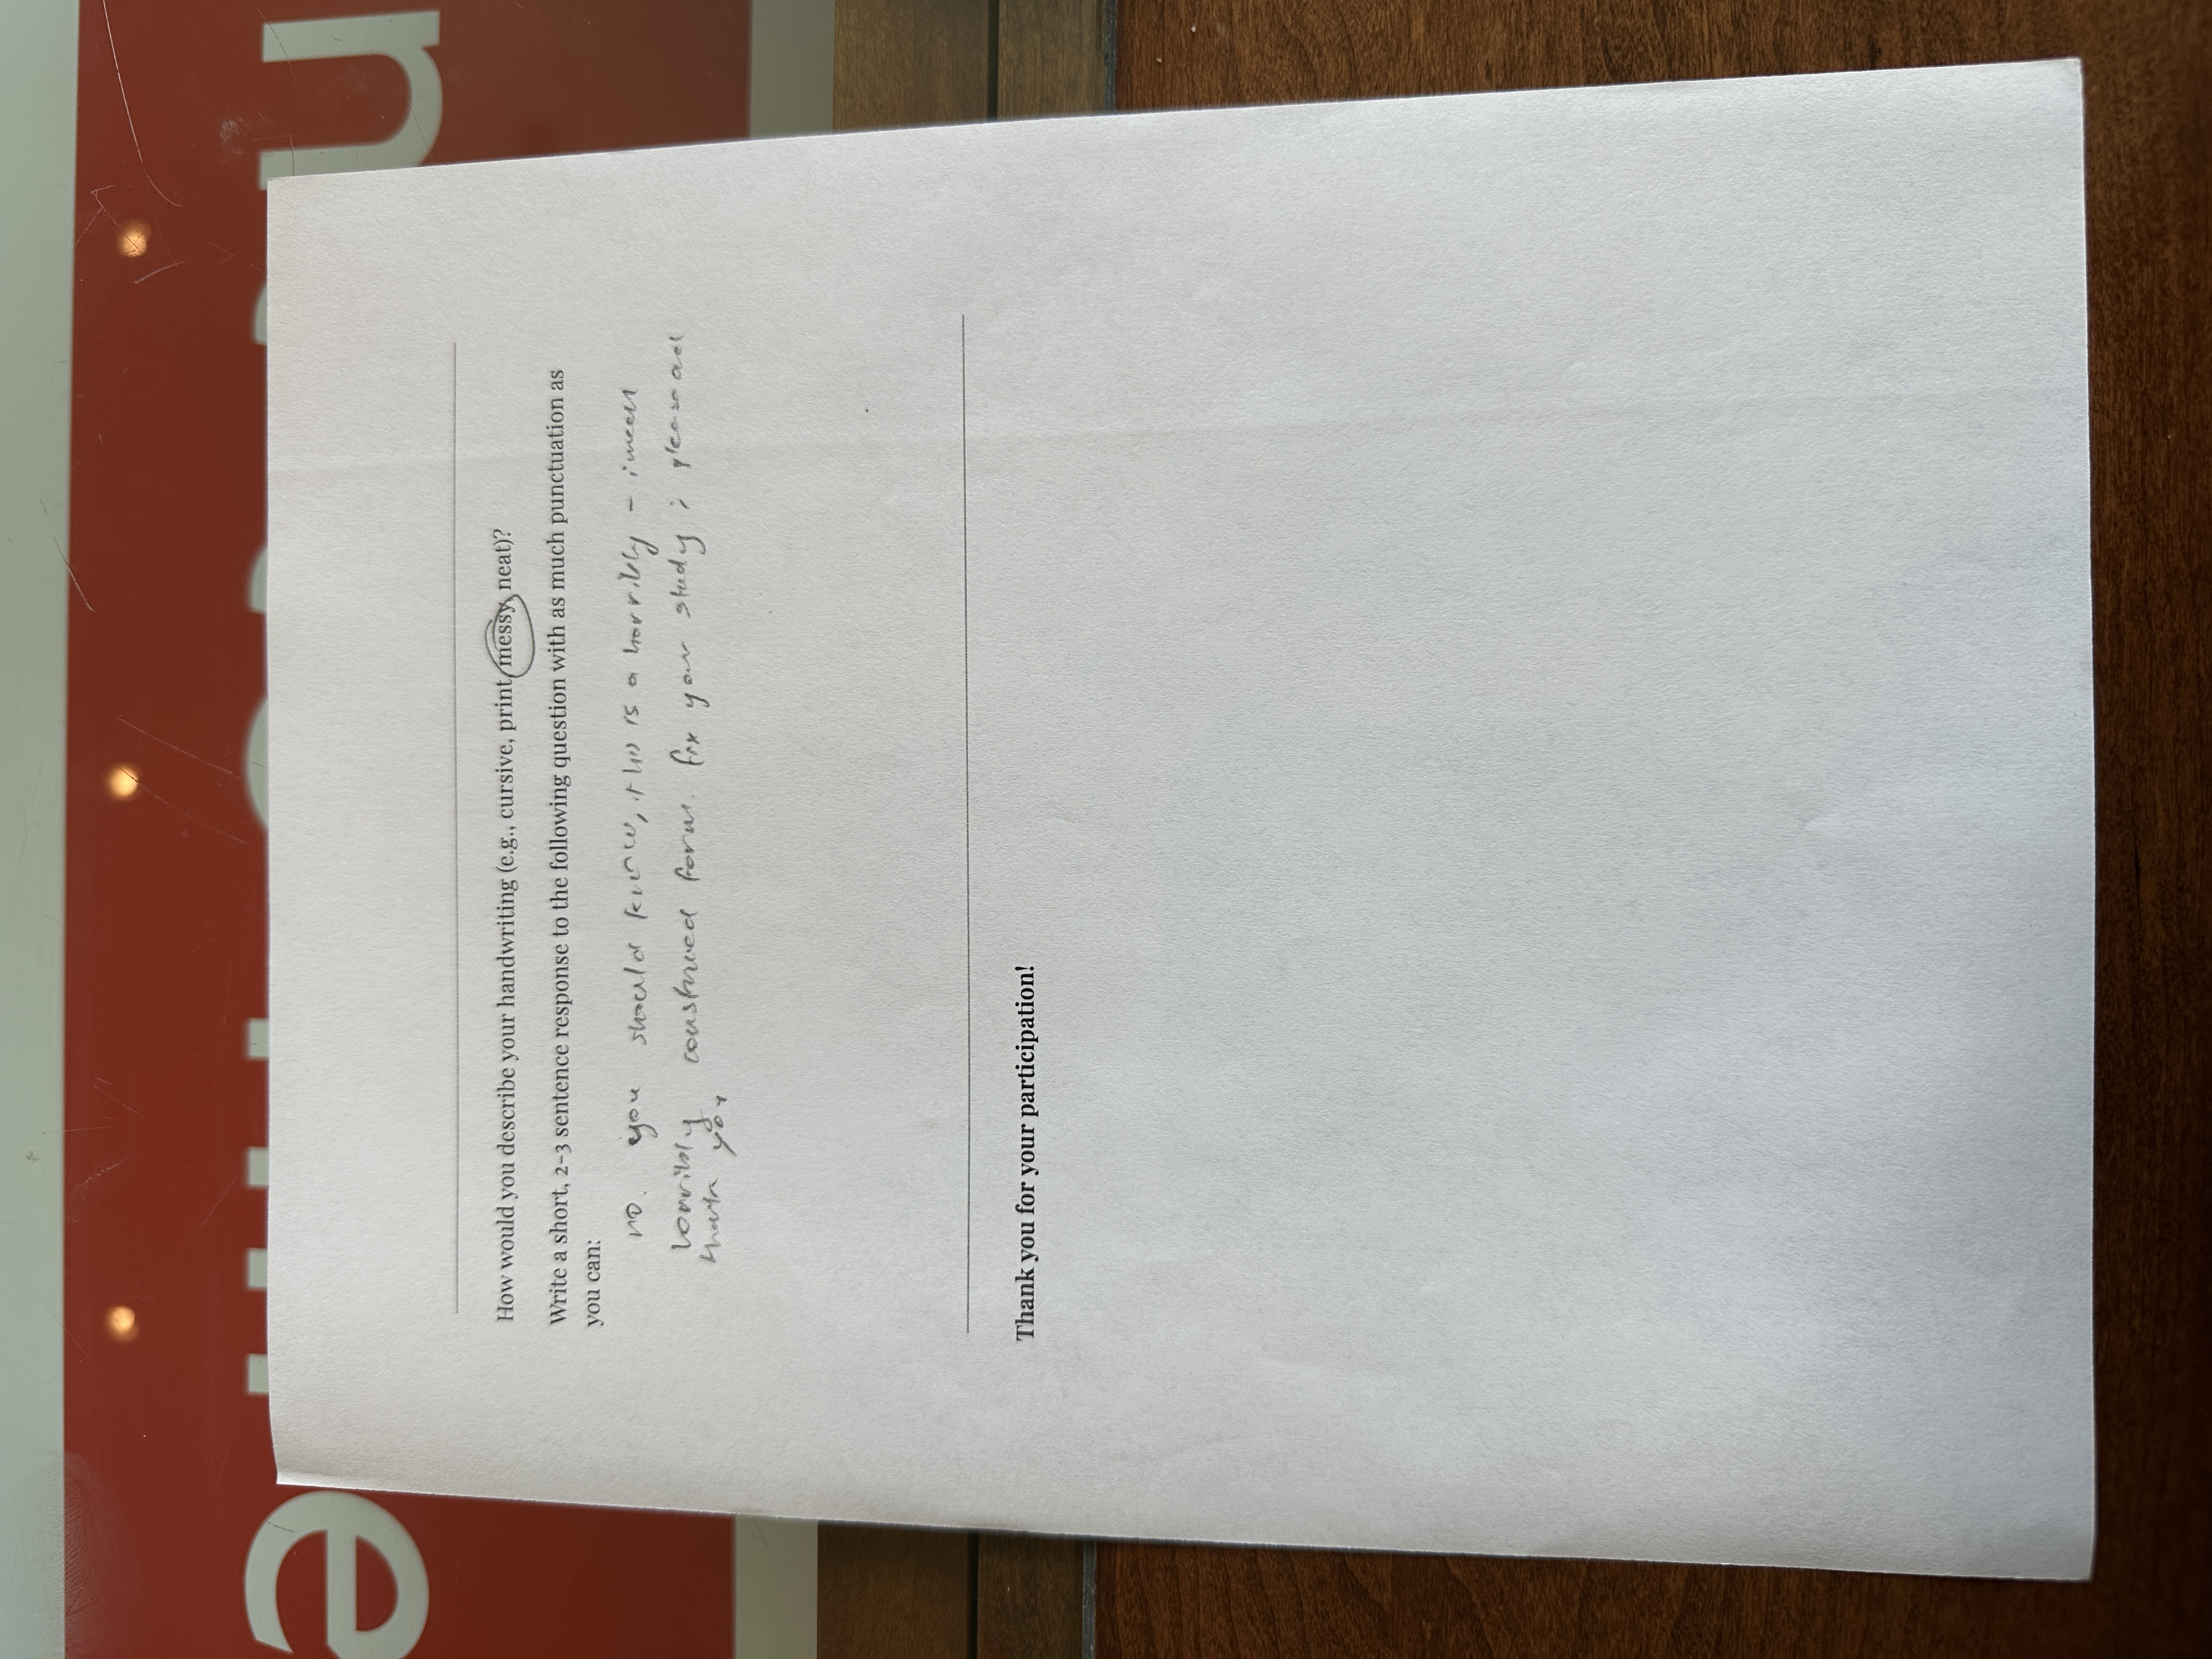 How would you describe your handwriting (e.g., cursive, print, messy, neat)?
Write a short, 2-3 sentence response to the following question with as much punctuation as
you can:
no. you should know, this is a horribly - i mean
horribly construed form. fix your study ; please and
thank you
Thank you for your participation!